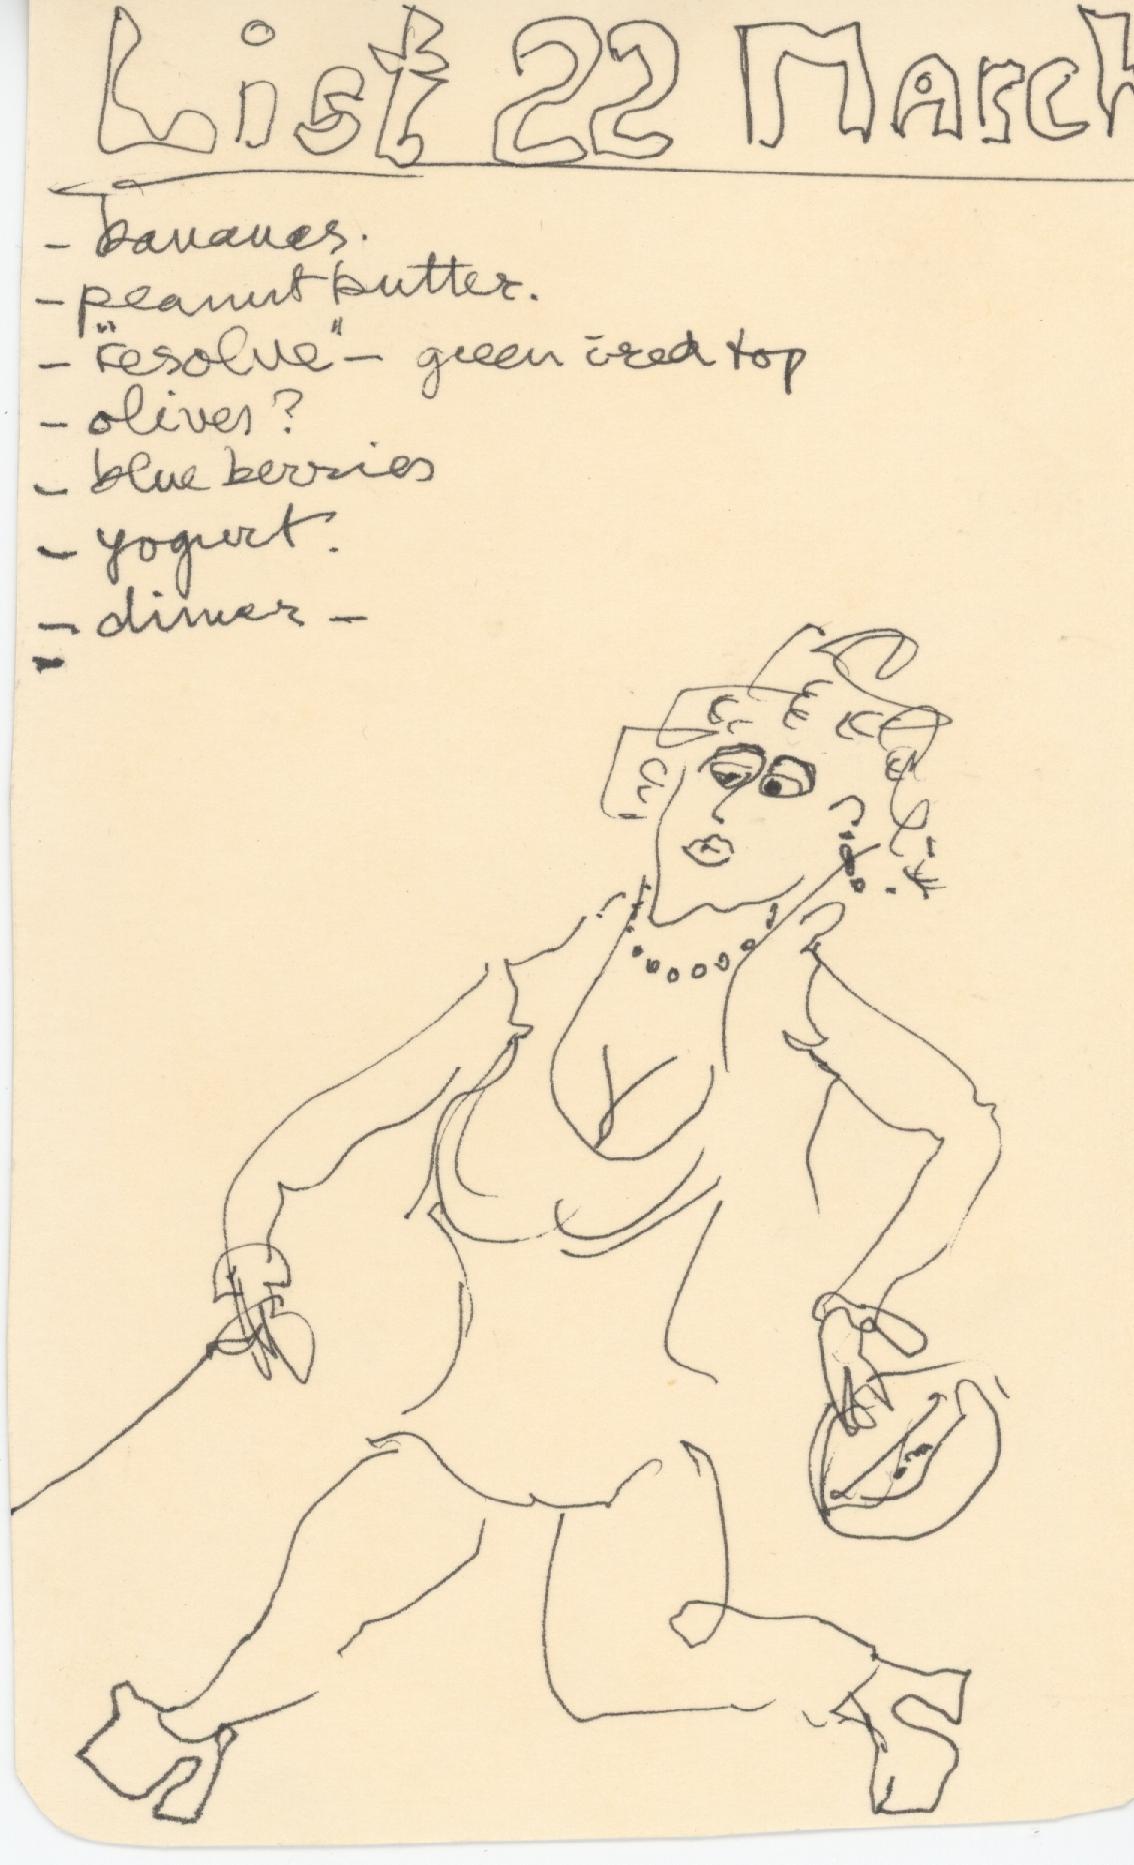 List 22 March
- bananas.
- peanut butter.
- "resolve" - green c̄ red top
- olives?
- blue berries
- yogurt.
- dinner -
-